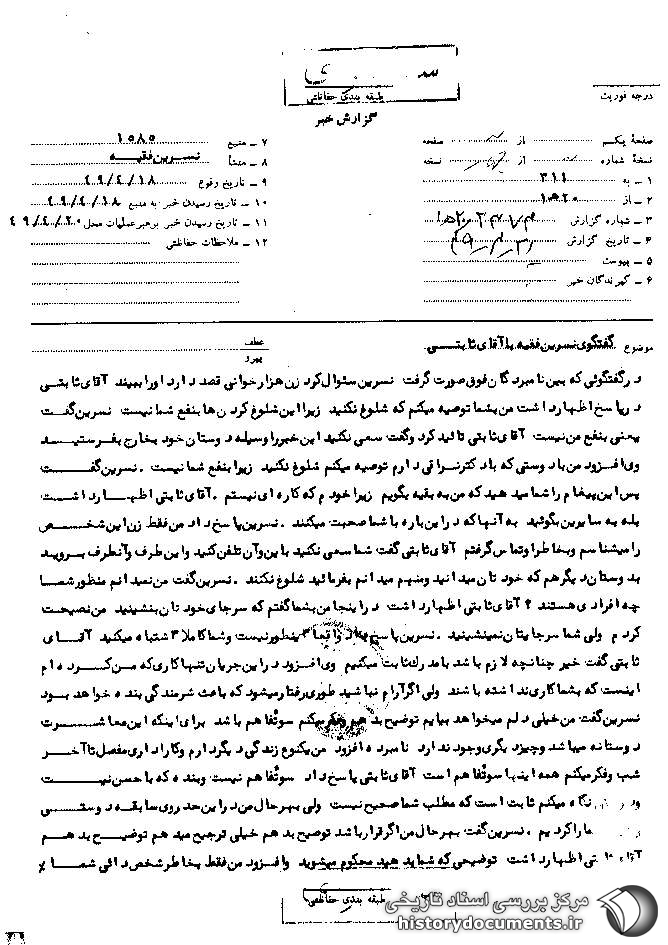 طبقه بندی حفاظتی
درجه فوریت
گزارش خبر
صفحه یکم از صفحه
نسخه شماره از نسخه
۱ ـ به ۳۱۱
۲ ـ از
۳ ـ شماره گزارش
۴ ـ تاریخ گزارش
۵ ـ پیوست
۶ ـ گیرندگان خبر
۷ ـ منبع ۱۵۸۵
۸ ـ منشأ نسرین فقیه
۹ ـ تاریخ وقوع ۴۹/۴/۱۸
۱۰ ـ تاریخ رسیدن خبر به منبع ۴۹/۴/۱۸
۱۱ ـ تاریخ رسیدن خبر برهبر عملیات محل ۴۹/۴/۲۰
۱۲ ـ ملاحظات حفاظتی
موضوع گفتگوی نسرین فقیه با آقای ثابتی
عطف
پیرو
در گفتگوئی که بین نامبردگان فوق صورت گرفت نسرین سئوال کرد زن هزارخوانی قصد دارد او را ببیند آقای ثابتی
در پاسخ اظهار داشت من بشما توصیه میکنم که شلوغ نکنید زیرا این شلوغ کردن ها بنفع شما نیست نسرین گفت
یعنی بنفع من نیست آقای ثابتی تائید کرد و گفت سعی نکنید این خبر را وسیله دوستان خود بخارج بفرستید
وی افزود من با دوستی که با دکتر نراقی دارم توصیه میکنم شلوغ نکنید زیرا بنفع شما نیست . نسرین گفت
پس این پیغام را شما میدهید که من به بقیه بگویم زیرا خودم که کاره ای نیستم . آقای ثابتی اظهار داشت
بله به سایرین بگوئید به آنها که در این باره با شما صحبت میکنند . نسرین پاسخ داد من فقط زن این شخص
را میشناسم و بخاطر او تماس گرفتم آقای ثابتی گفت شما سعی نکنید با این و آن تلفن کنید و این طرف و آنطرف بروید
بدوستان دیگر هم که خودتان میدانید و منهم میدانم بفرمائید شلوغ نکنند . نسرین گفت من نمیدانم منظور شما
چه افرادی هستند ؟ آقای ثابتی اظهار داشت در اینجا من بشما گفتم که سرجای خودتان بنشینید من نصیحت
کردم ولی شما سرجایتان نمینشینید . نسرین پاسخ داد واقعا اینطور نیست و شما کاملا اشتباه میکنید آقای
ثابتی گفت خیر چنانچه لازم باشد با مدرک ثابت میکنیم وی افزود در این جریان تنها کاری که من کرده ام
اینست که بشما کاری نداشته باشند ولی اگر آرام نباشید طوری رفتار میشود که باعث شرمندگی بنده خواهد بود
نسرین گفت من خیلی دلم میخواهد بیایم توضیح بدهم و فکر میکنم سوءتفاهم باشد برای اینکه این معاشرت
دوستانه میباشد و چیز دیگری وجود ندارد نامبرده افزود من یکنوع زندگی دیگر دارم و کار اداری مفصل تا آخر
شب و فکر میکنم همه اینها سوءتفاهم است آقای ثابتی پاسخ داد سوءتفاهم نیست و بنده که با حسن نیت
نگاه میکنم ثابت است که مطلب شما صحیح نیست ولی بهر حال من در این حد روی سابقه دوستی
شما را کردیم . نسرین گفت بهر حال من اگر قرار باشد توضیح بدهم خیلی ترجیح میدهم توضیح بدهم
آقای ثابتی اظهار داشت توضیحی که شما بدهید محکوم میشوید و افزود من فقط بخاطر شخص دائی شما
طبقه بندی حفاظتی
مرکز بررسی اسناد تاریخی
historydocuments.ir